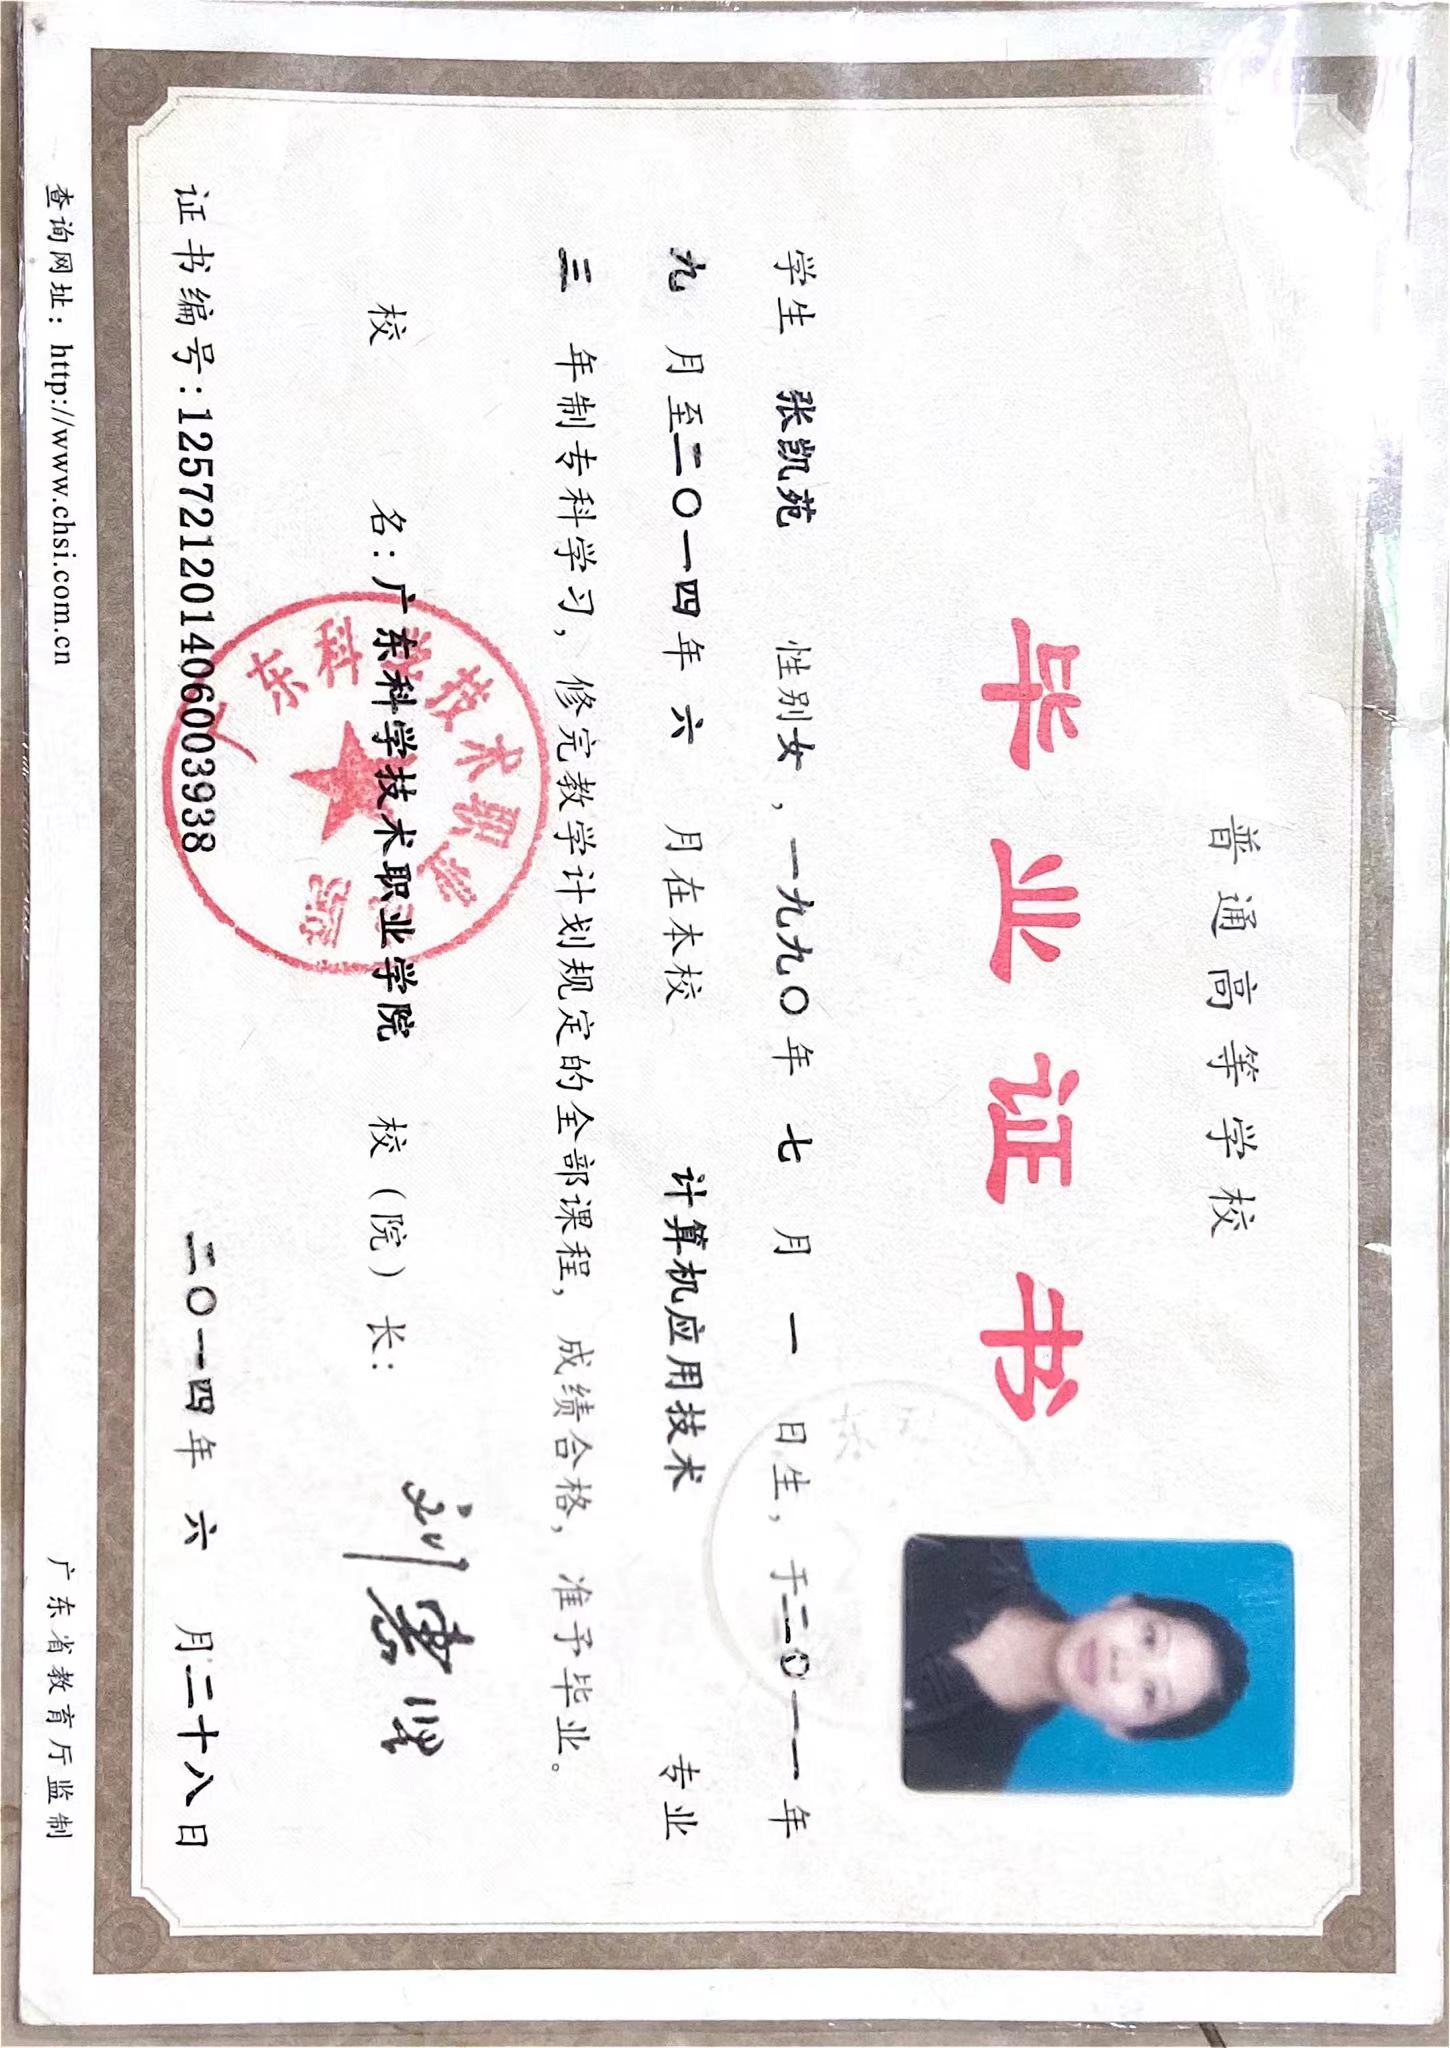 普通高等学校
毕业证书
学生 张凯苑 性别女，一九九〇年 七 月 一 日生，于二〇一一年
九 月至二〇一四年 六 月在本校 计算机应用技术 专业
三 年制专科学习，修完教学计划规定的全部课程，成绩合格，准予毕业。
校 名：广东科学技术职业学院 校（院）长：
广东科学技术职业学院
证书编号：125721201406003938 二〇一四年 六 月二十八日
查询网址：http://www.chsi.com.cn 广东省教育厅监制